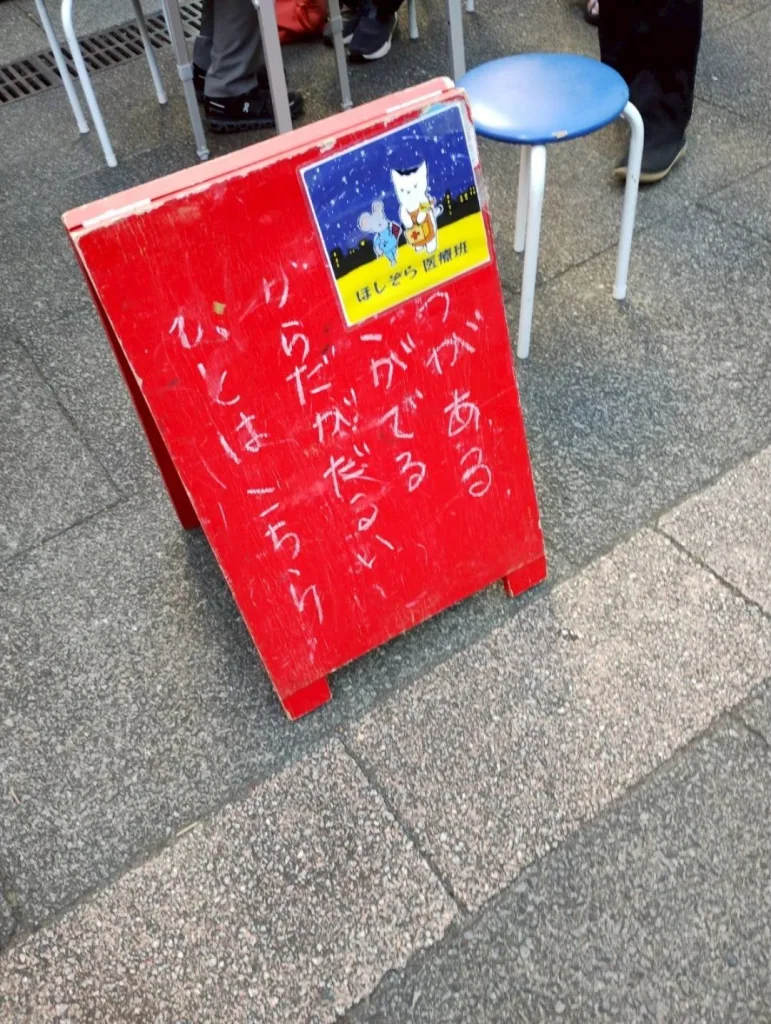 ほしぞら 医療班
つがある
がでる
からだがだるい
ひとは こちら